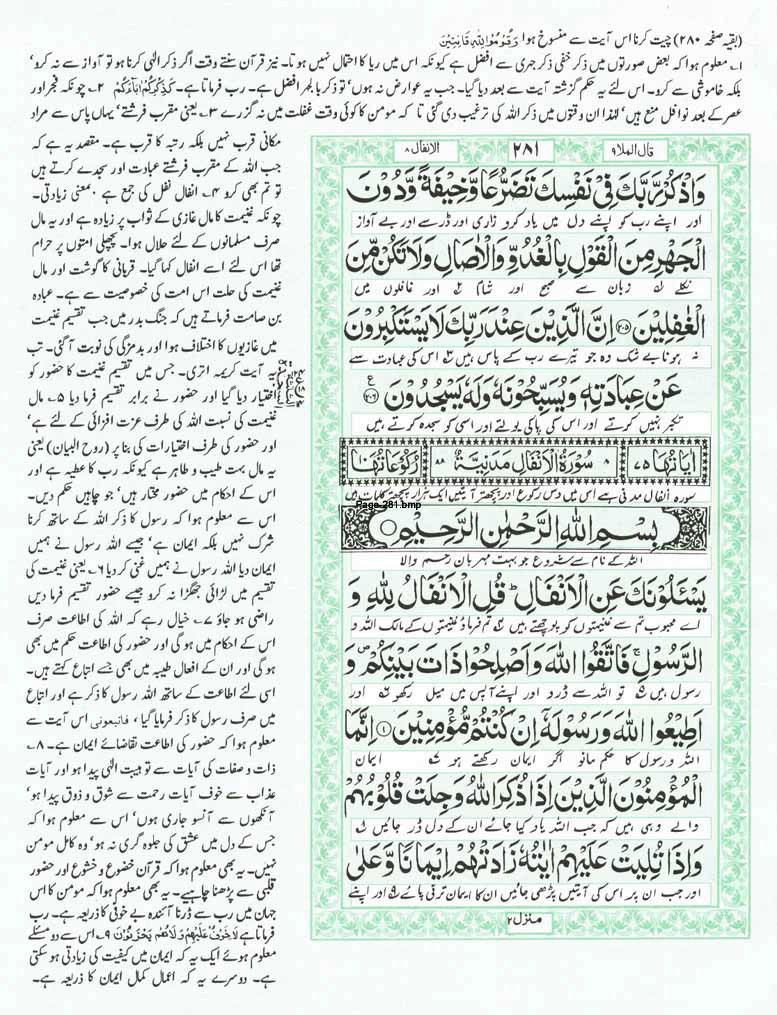 (بقیہ صفحہ ۲۸۰) چیت کرنا اس آیت سے منسوخ ہوا وَقُوْمُوْا لِلّٰهِ قَانِتِیْنَ
۱۔ معلوم ہوا کہ بعض صورتوں میں ذکر خفی ذکر جہری سے افضل ہے کیونکہ اس میں ریا کا احتمال نہیں ہوتا۔ نیز قرآن سنتے وقت اگر ذکر الٰہی کرنا ہو تو آواز سے نہ کرو'
بلکہ خاموشی سے کرو۔ اس لئے یہ حکم گزشتہ آیت سے بعد دیا گیا۔ جب یہ عوارض نہ ہوں' تو ذکر بالجہر افضل ہے۔ رب فرماتا ہے۔ کَذِکْرِکُمْ اٰبَآءَکُمْ ۲۔ چونکہ فجر اور
عصر کے بعد نوافل منع ہیں' لہٰذا ان وقتوں میں ذکر اللہ کی ترغیب دی گئی تا کہ مومن کا کوئی وقت غفلت میں نہ گزرے ۳۔ یعنی مقرب فرشتے' یہاں پاس سے مراد
مکانی قرب نہیں بلکہ رتبہ کا قرب ہے۔ مقصد یہ ہے کہ
جب اللہ کے مقرب فرشتے عبادت اور سجدے کرتے ہیں
تو تم بھی کرو ۴۔ انفال نفل کی جمع ہے ؛معنی زیادتی۔
چونکہ غنیمت کا مال غازی کے ثواب پر زیادہ ہے اور یہ مال
صرف مسلمانوں کے لئے حلال ہوا۔ پچھلی امتوں پر حرام
تھا اس لئے اسے انفال کہا گیا۔ قربانی کا گوشت اور مال
غنیمت کی حلت اس امت کی خصوصیت سے ہے۔ عبادہ
بن صامت فرماتے ہیں کہ جنگ بدر میں جب تقسیم غنیمت
میں غازیوں کا اختلاف ہوا اور بدمزگی کی نوبت آ گئی۔ تب
یہ آیت کریمہ اتری۔ جس میں تقسیم غنیمت کا حضور کو
اختیار دیا گیا اور حضور نے برابر تقسیم فرما دیا ۵۔ مال
غنیمت کی نسبت اللہ کی طرف عزت افزائی کے لئے ہے'
اور حضور کی طرف اختیارات کی بنا پر (روح البیان) یعنی
یہ مال بہت طیب و طاہر ہے کیونکہ رب کا عطیہ ہے اور
اس کے احکام میں حضور مختار ہیں' جو چاہیں حکم دیں۔
اس سے معلوم ہوا کہ رسول کا ذکر اللہ کے ساتھ کرنا
شرک نہیں بلکہ ایمان ہے' جیسے اللہ رسول نے ہمیں
ایمان دیا اللہ رسول نے ہمیں غنی کر دیا ۶۔ یعنی غنیمت کی
تقسیم میں لڑائی جھگڑا نہ کرو جیسے حضور تقسیم فرما دیں
راضی ہو جاؤ ۷۔ خیال رہے کہ اللہ کی اطاعت صرف
اس کے احکام میں ہو گی اور حضور کی اطاعت حکم میں بھی
ہو گی اور ان کے افعال طیبہ میں بھی جسے اتباع کہتے ہیں۔
اسی لئے اطاعت کے ساتھ اللہ رسول کا ذکر ہے اور اتباع
میں صرف رسول کا ذکر فرمایا گیا، فاتبعونی اس آیت سے
معلوم ہوا کہ حضور کی اطاعت تقاضائے ایمان ہے۔ ۸۔
ذات و صفات کی آیات سے تو ہیبت الٰہی پیدا ہو اور آیات
عذاب سے خوف آیات رحمت سے شوق و ذوق پیدا ہو'
آنکھوں سے آنسو جاری ہوں' اس سے معلوم ہوا کہ
جس کے دل میں عشق کی جلوہ گری نہ ہو' وہ کامل مومن
نہیں۔ یہ بھی معلوم ہوا کہ قرآن خضوع و خشوع اور حضور
قلبی سے پڑھنا چاہیے۔ یہ بھی معلوم ہوا کہ مومن کا اس
جہان میں رب سے ڈرنا آئندہ بے خوفی کا ذریعہ ہے۔ رب
فرماتا ہے لَا خَوْفٌ عَلَیْهِمْ وَلَا هُمْ یَحْزَنُوْنَ ۹۔ اس سے دو مسئلے
معلوم ہوئے ایک یہ کہ ایمان میں کیفیت کی زیادتی ہو سکتی
ہے۔ دوسرے یہ کہ اعمال کمال ایمان کا ذریعہ ہے۔
قال الملا ۹
۲۸۱
الانفال ۸
وَاذْكُرْ رَّبَّكَ فِیْ نَفْسِكَ تَضَرُّعًا وَّخِیْفَةً وَّدُوْنَ
اور اپنے رب کو اپنے دل میں یاد کرو زاری اور ڈر سے اور بے آواز
الْجَهْرِ مِنَ الْقَوْلِ بِالْغُدُوِّ وَالْاٰصَالِ وَلَا تَكُنْ مِّنَ
نکلے زبان سے صبح اور شام اور غافلوں میں
الْغٰفِلِیْنَ ﴿۲۰۵﴾ اِنَّ الَّذِیْنَ عِنْدَ رَبِّكَ لَا یَسْتَكْبِرُوْنَ
نہ ہونا بے شک وہ جو تیرے رب کے پاس ہیں اس کی عبادت سے
عَنْ عِبَادَتِهٖ وَیُسَبِّحُوْنَهٗ وَلَهٗ یَسْجُدُوْنَ ﴿۲۰۶﴾ ع
تکبر نہیں کرتے اور اس کی پاکی بولتے اور اسی کو سجدہ کرتے ہیں
اٰیَاتُهَا ۷۵ ۸ سُوْرَةُ الْاَنْفَالِ مَدَنِیَّةٌ ۸۸ رُكُوْعَاتُهَا ۱۰
سورہ انفال مدنی ہے اس میں دس رکوع اور پچھتر آیتیں ایک ہزار پچھتر کلمات ہیں
Page-281.bmp
بِسْمِ اللّٰهِ الرَّحْمٰنِ الرَّحِیْمِ
اللہ کے نام سے شروع جو بہت مہربان رحم والا
یَسْـَٔلُوْنَكَ عَنِ الْاَنْفَالِ ؕ قُلِ الْاَنْفَالُ لِلّٰهِ وَ
اے محبوب تم سے غنیمتوں کو پوچھتے ہیں تم فرماؤ غنیمتوں کے مالک اللہ و
الرَّسُوْلِ ۚ فَاتَّقُوا اللّٰهَ وَاَصْلِحُوْا ذَاتَ بَیْنِكُمْ ۪ وَ
رسول ہیں تو اللہ سے ڈرو اور اپنے آپس میں میل رکھو اور
اَطِیْعُوا اللّٰهَ وَرَسُوْلَهٗۤ اِنْ كُنْتُمْ مُّؤْمِنِیْنَ ﴿۱﴾ اِنَّمَا
اللہ و رسول کا حکم مانو اگر ایمان رکھتے ہو ایمان
الْمُؤْمِنُوْنَ الَّذِیْنَ اِذَا ذُكِرَ اللّٰهُ وَجِلَتْ قُلُوْبُهُمْ
والے وہی ہیں کہ جب اللہ یاد کیا جائے ان کے دل ڈر جائیں
وَاِذَا تُلِیَتْ عَلَیْهِمْ اٰیٰتُهٗ زَادَتْهُمْ اِیْمَانًا وَّعَلٰی
اور جب ان پر اس کی آیتیں پڑھی جائیں ان کا ایمان ترقی پائے اور اپنے
منزل ۲